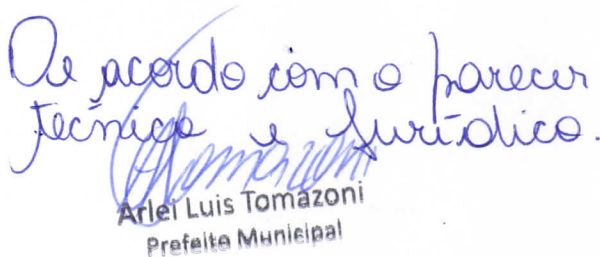 De acordo com o parecer
técnico e Jurídico.
Tomazoni
Arlei Luis Tomazoni
Prefeito Municipal